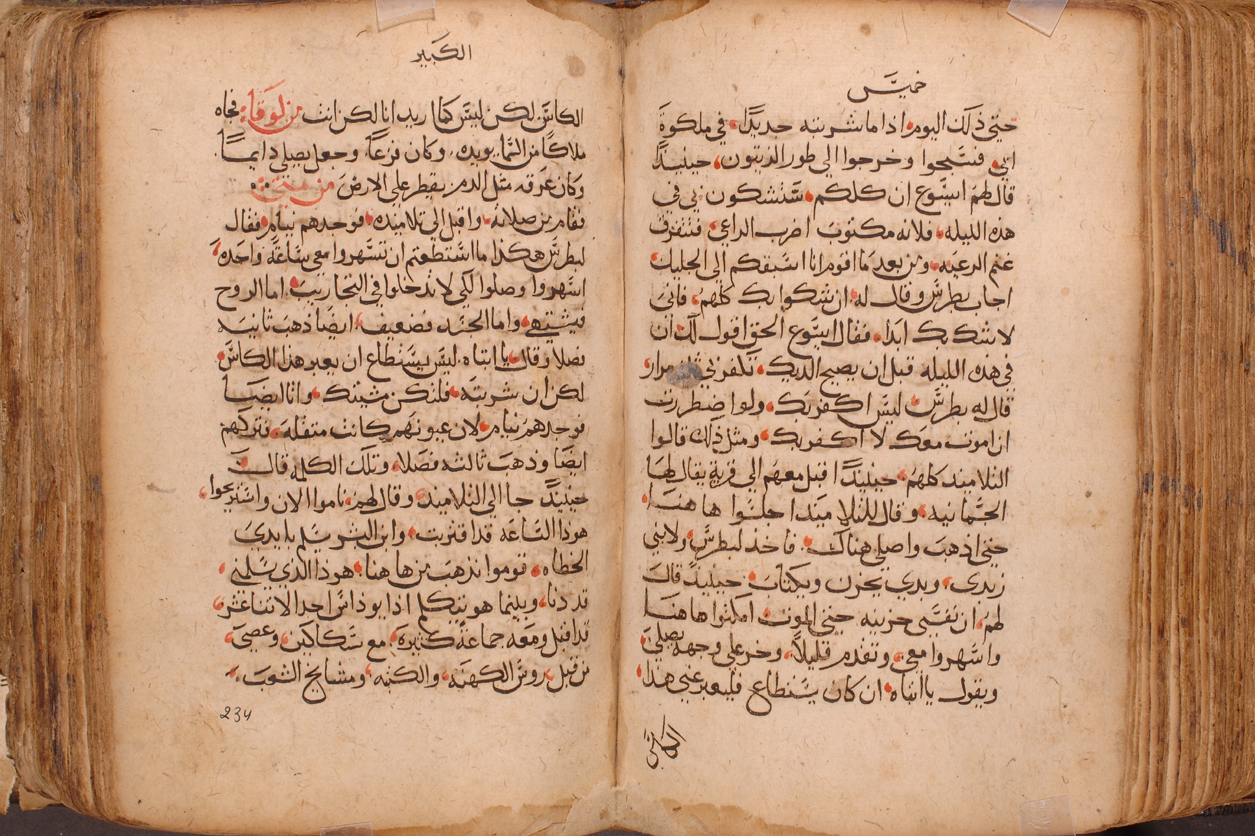 خميس
حتى ذلك اليوم اذا ما شربته جديدًا في ملكوة
ابي فسبحوا وخرجوا الي طور الزيتون حينيذًا
قال لهم ايسوع ان كلكم ستشكون بي في
هذه الليله فلانه مكتوب اضرب الراعي فتتفرق
غنم الرعيه ومن بعد ما اقوم انا اسبقكم الى الجليل
اجاب بطرس وقال له ان شكوا بك كلهم فاني
لا شك بك ابدا فقال ايسوع الحق اقول لك ان
في هذه الليله قبل ان يصيح الديك تكفر بي مرار
قال له بطرس ليس اكفر بك ولوا ضطررت
ان اموت معك لا اكفر بك ومثل ذلك قالوا
التلاميد كلهم حينيدًا اقبل معهم الي قرية يقال لها
الجسمانيه وقال للتلاميد اجلسوا ها هنا
حتي اذهب واصلي هناك فاخد لبطرس ولابني
زبدى وبدي يحزن ويكتاب حينيدً قال
لهم ان نفسي حزينه حتي الموت امكثوا ها هنا
واسهروا معي وتقدم قليلًا وخر على وجهه يصلي
ويقول يا ابتاه ان كان يستطاع فليعبر عني هدا
الكاس
الكبير
الكاس لكن ليس كما اريد انا لكن انت من لوقا فجاه
ملاكًا من السما يويده وكان فزعًا وجعل يصلي دايمًا
وكان عرقه مثل الدم يقطر على الارض من متى
فقام من صلاته واقبل الى تلاميده فوجدهم نيام فقال
لبطرس هكذا ما استطعتم ان تسهروا معي ساعة واحده
اسهروا وصلوا لكي لا تدخلوا في التجاريب اما الروح
فيشتهي واما الجسد فضعيف ايضًا ذهب ثانيه
فصلا وقال يا ابتاه ليس يستطاع ان يعبر هذا الكاس
لكن ان شربته فلتكن مشيتك وانا ايضًا
فوجدهم نيام لان عيونهم كانت متقله فتركهم
ايضًا وذهب ثالثه فصلا وتلك الكلمه قال
حينيدً جا الي التلاميد وقال لهم ناموا الان واستريحوا
هودا الساعه قد اقتربت وابن البشر يسلم بايدي
الخطاه قوموا نذهب من ها هنا هودا الذي يسلمني
قد دنا وبينما هو يتكلم ادا يوداس احد الاتناعشر
قد اقبل ومعه جماعة كثيرة مع سكاكين وعصي
من قبل روس الكهنه والكتبه ومشايخ الشعب
234